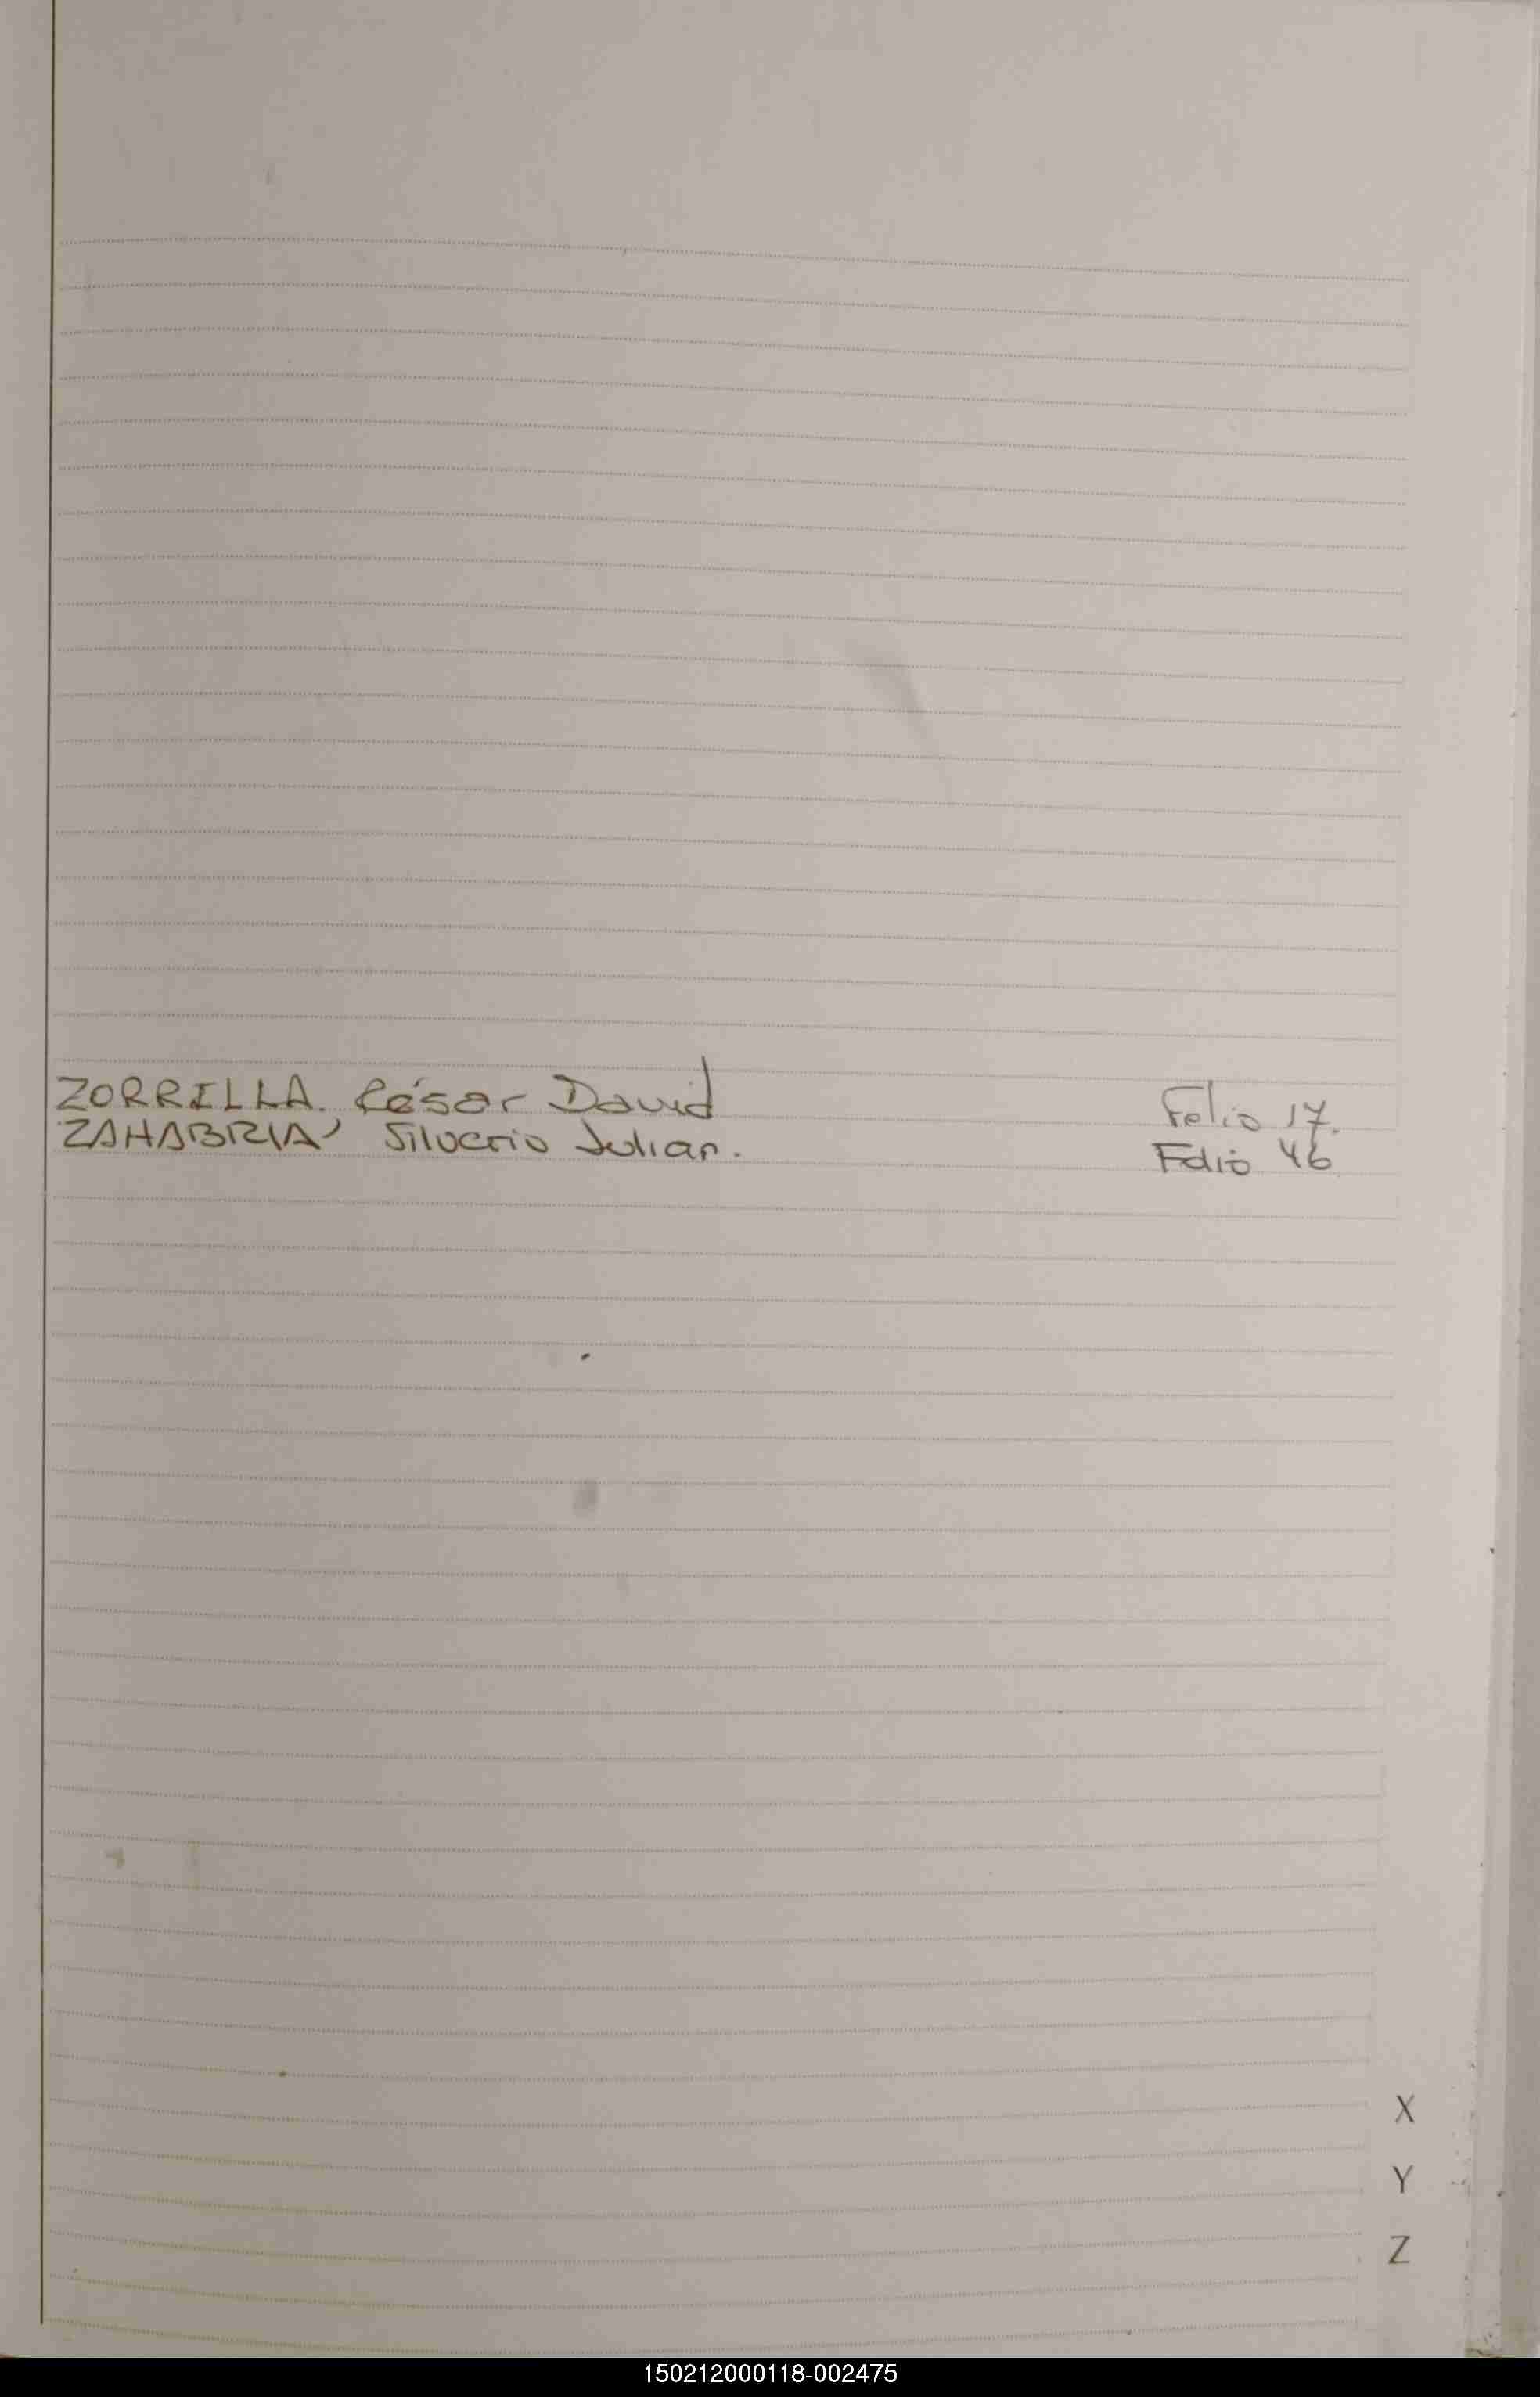 ZORRILLA. César David Folio 17.
ZAHABRIA, Silverio Julian. Folio 46
X
Y
Z
150212000118-002475